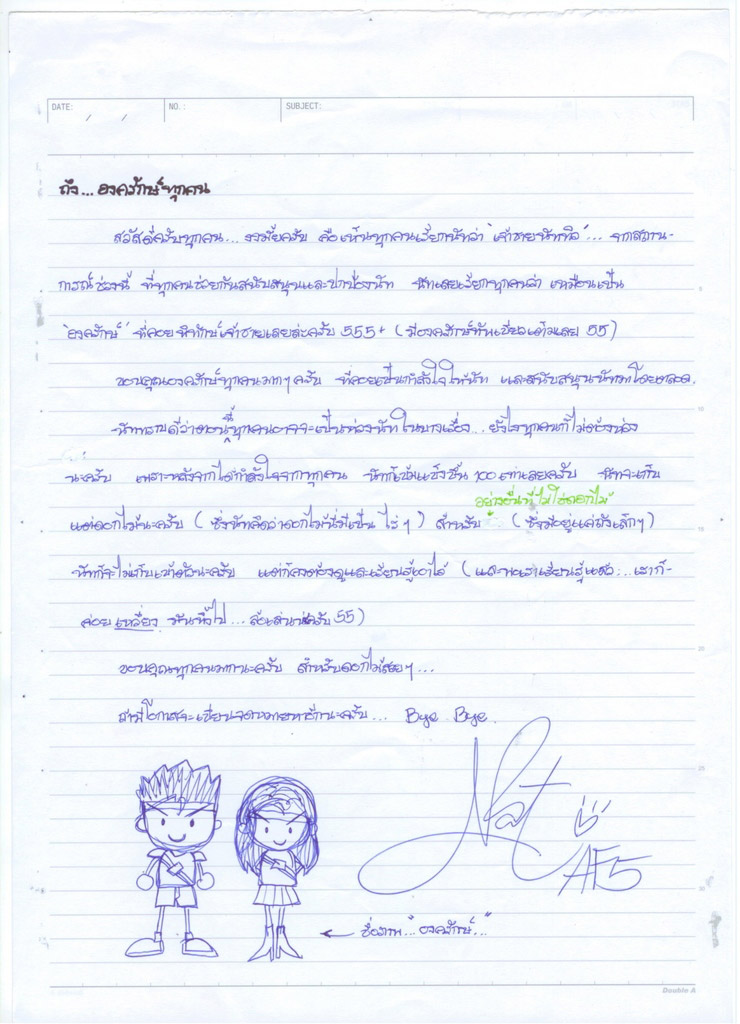 DATE: / /
NO. :
SUBJECT:
ถึง... องครักษ์ทุกคน
สวัสดีครับทุกคน... งงมั้ยครับ คือเห็นทุกคนเรียกนัทว่า "เจ้าชายนัททิว"... จากสถาน-
การณ์ช่วงนี้ ที่ทุกคนช่วยกันสนับสนุนและปกป้องนัท นัทเลยเรียกทุกคนว่า เหมือนเป็น
"องครักษ์" ที่คอยพิทักษ์เจ้าชายเลยล่ะครับ 555+ (มีองครักษ์เต็มเลย 55)
ขอบคุณองครักษ์ทุกคนมากๆครับ ที่คอยเป็นกำลังใจให้นัท และสนับสนุนนัทมาโดยตลอด.
นัททราบดีว่าตอนนี้ทุกคนอาจจะเป็นห่วงนัทในบางเรื่อง... ยังไงทุกคนก็ไม่ต้องห่วง
นะครับ เพราะหลังจากได้กำลังใจจากทุกคน นัทก็เข้มแข็งขึ้น 100 เท่าเลยครับ นัทจะเก็บ
อย่างอื่นที่ไม่ใช่ดอกไม้
แต่ดอกไม้นะครับ (ซึ่งนัทคิดว่าดอกไม้นี่มีเป็น ไร่ๆ) สำหรับ (ซึ่งมีอยู่แค่ถังเล็กๆ)
นัทก็จะไม่เก็บเข้าตัวนะครับ แต่ก็คงต้องดูและเรียนรู้เอาไว้ (และพอเราเรียนรู้แล้ว... เราก็-
ค่อย เหวี่ยง มันทิ้งไป... ล้อเล่นน่ะครับ 55)
ขอบคุณทุกคนมากนะครับ สำหรับดอกไม้สวยๆ...
ถ้ามีโอกาสจะเขียนจดหมายมาอีกนะครับ... Bye Bye.
Nat
AF5
← ชื่อภาพ "องครักษ์..."
Double A